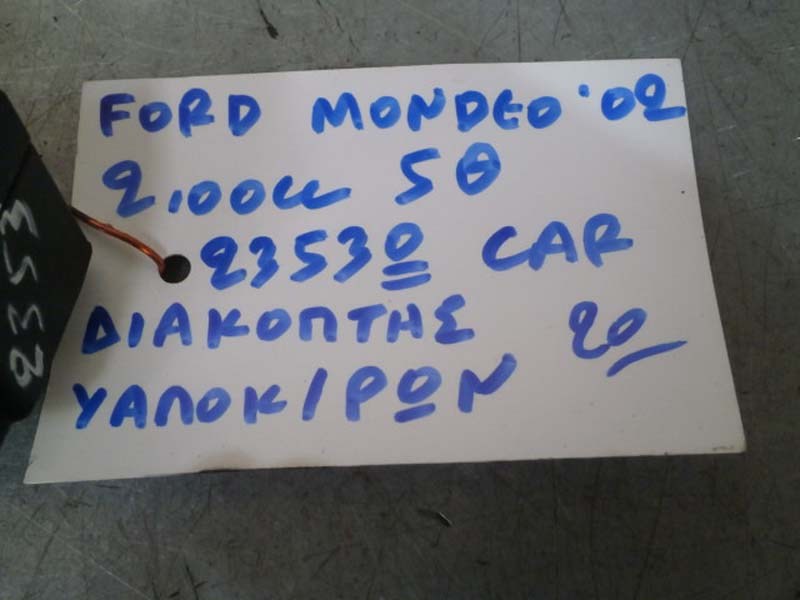 FORD MONDEO '02
2,00cc 5Θ
23530 CAR
ΔΙΑΚΟΠΤΗΣ 20
ΥΑΛΟΚ/ΡΩΝ
2353